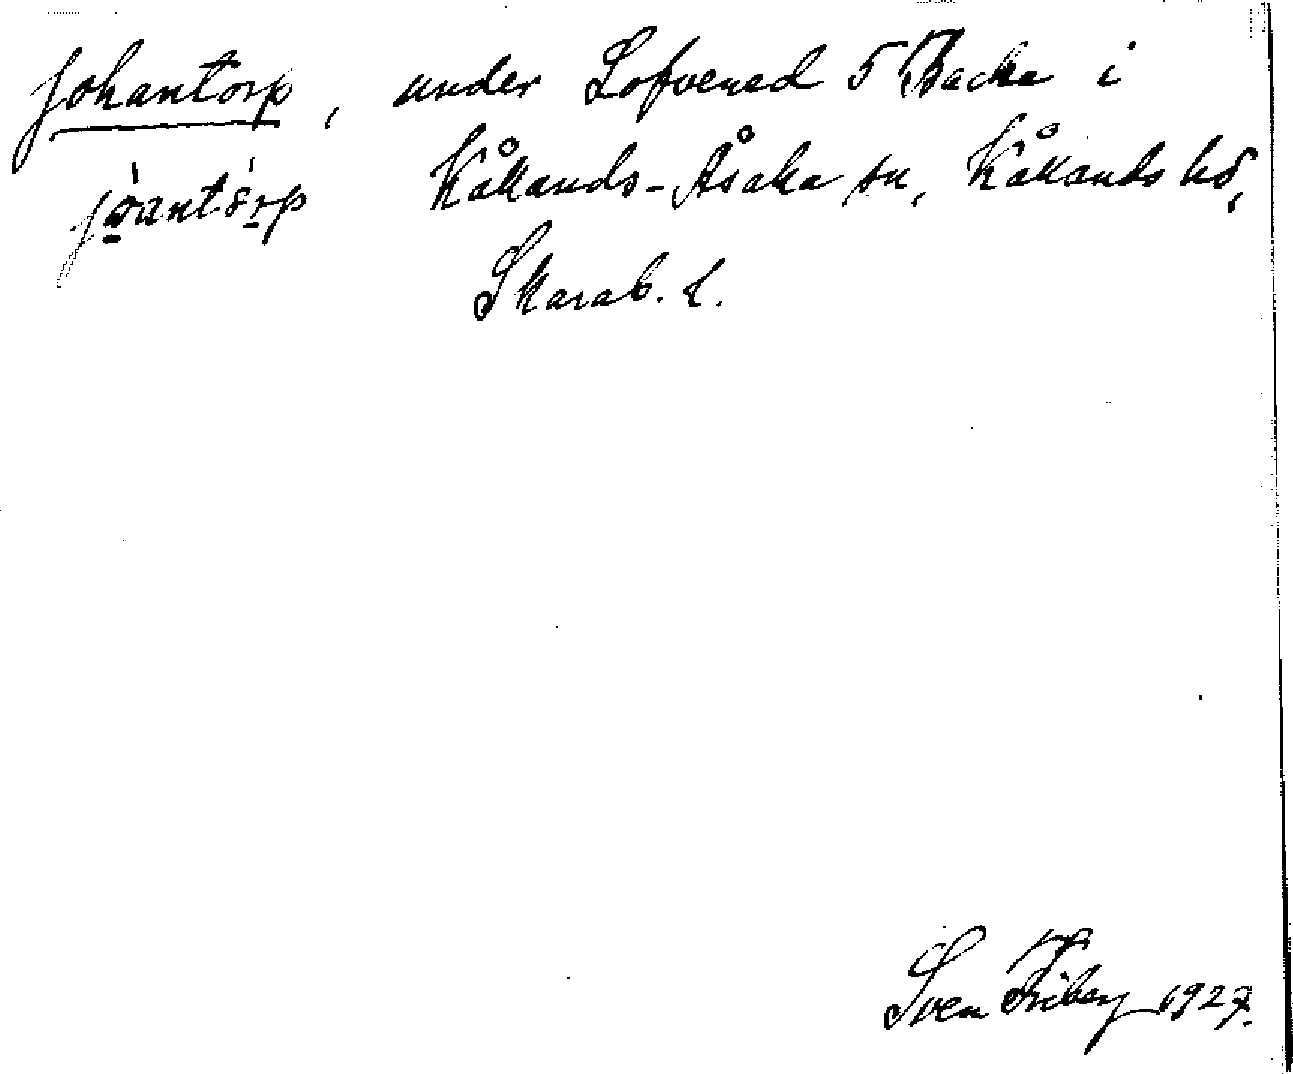 Johantorp, under Lofvened 5 Backa i
jo̱antårp Kållands-Åsaka sn, Kållands hd,
Skarab. L.
Sven Friberg 1927.